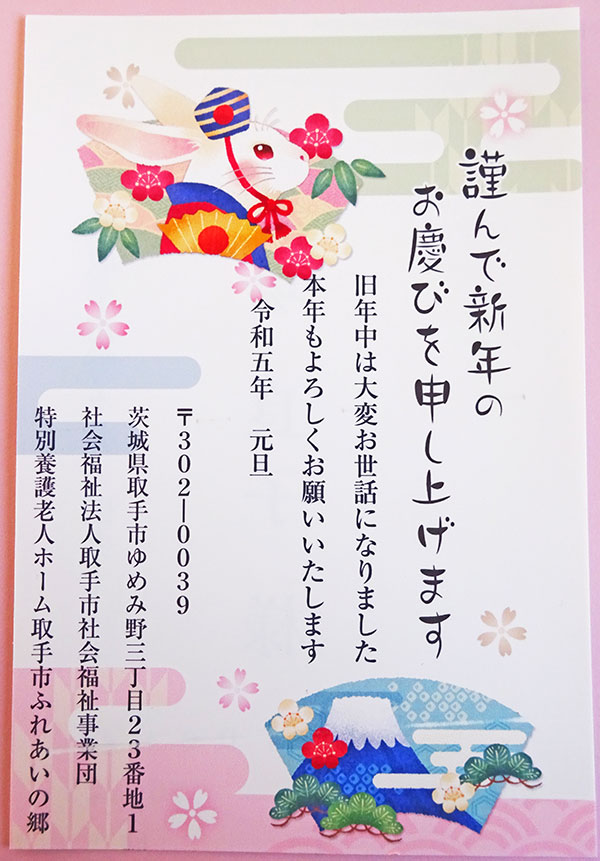 謹んで新年の
お慶びを申し上げます
旧年中は大変お世話になりました
本年もよろしくお願いいたします
令和五年　元旦
〒302―0039
茨城県取手市ゆめみ野三丁目23番地1
社会福祉法人取手市社会福祉事業団
特別養護老人ホーム取手市ふれあいの郷